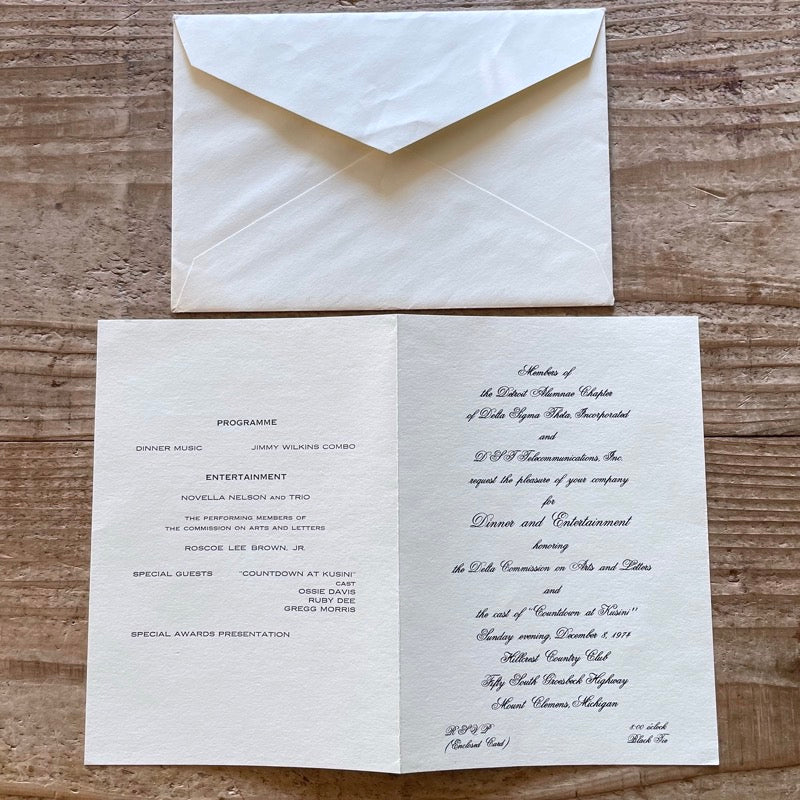 PROGRAMME
DINNER MUSIC JIMMY WILKINS COMBO
ENTERTAINMENT
NOVELLA NELSON AND TRIO
THE PERFORMING MEMBERS OF
THE COMMISSION ON ARTS AND LETTERS
ROSCOE LEE BROWN, JR.
SPECIAL GUESTS "COUNTDOWN AT KUSINI"
CAST
OSSIE DAVIS
RUBY DEE
GREGG MORRIS
SPECIAL AWARDS PRESENTATION
Members of
the Detroit Alumnae Chapter
of Delta Sigma Theta, Incorporated
and
D S T Telecommunications, Inc.
request the pleasure of your company
for
Dinner and Entertainment
honoring
the Delta Commission on Arts and Letters
and
the cast of "Countdown at Kusini"
Sunday evening, December 8, 1974
Hillcrest Country Club
Fifty South Groesbeck Highway
Mount Clemens, Michigan
R S V P
(Enclosed Card)
8:00 o'clock
Black Tie